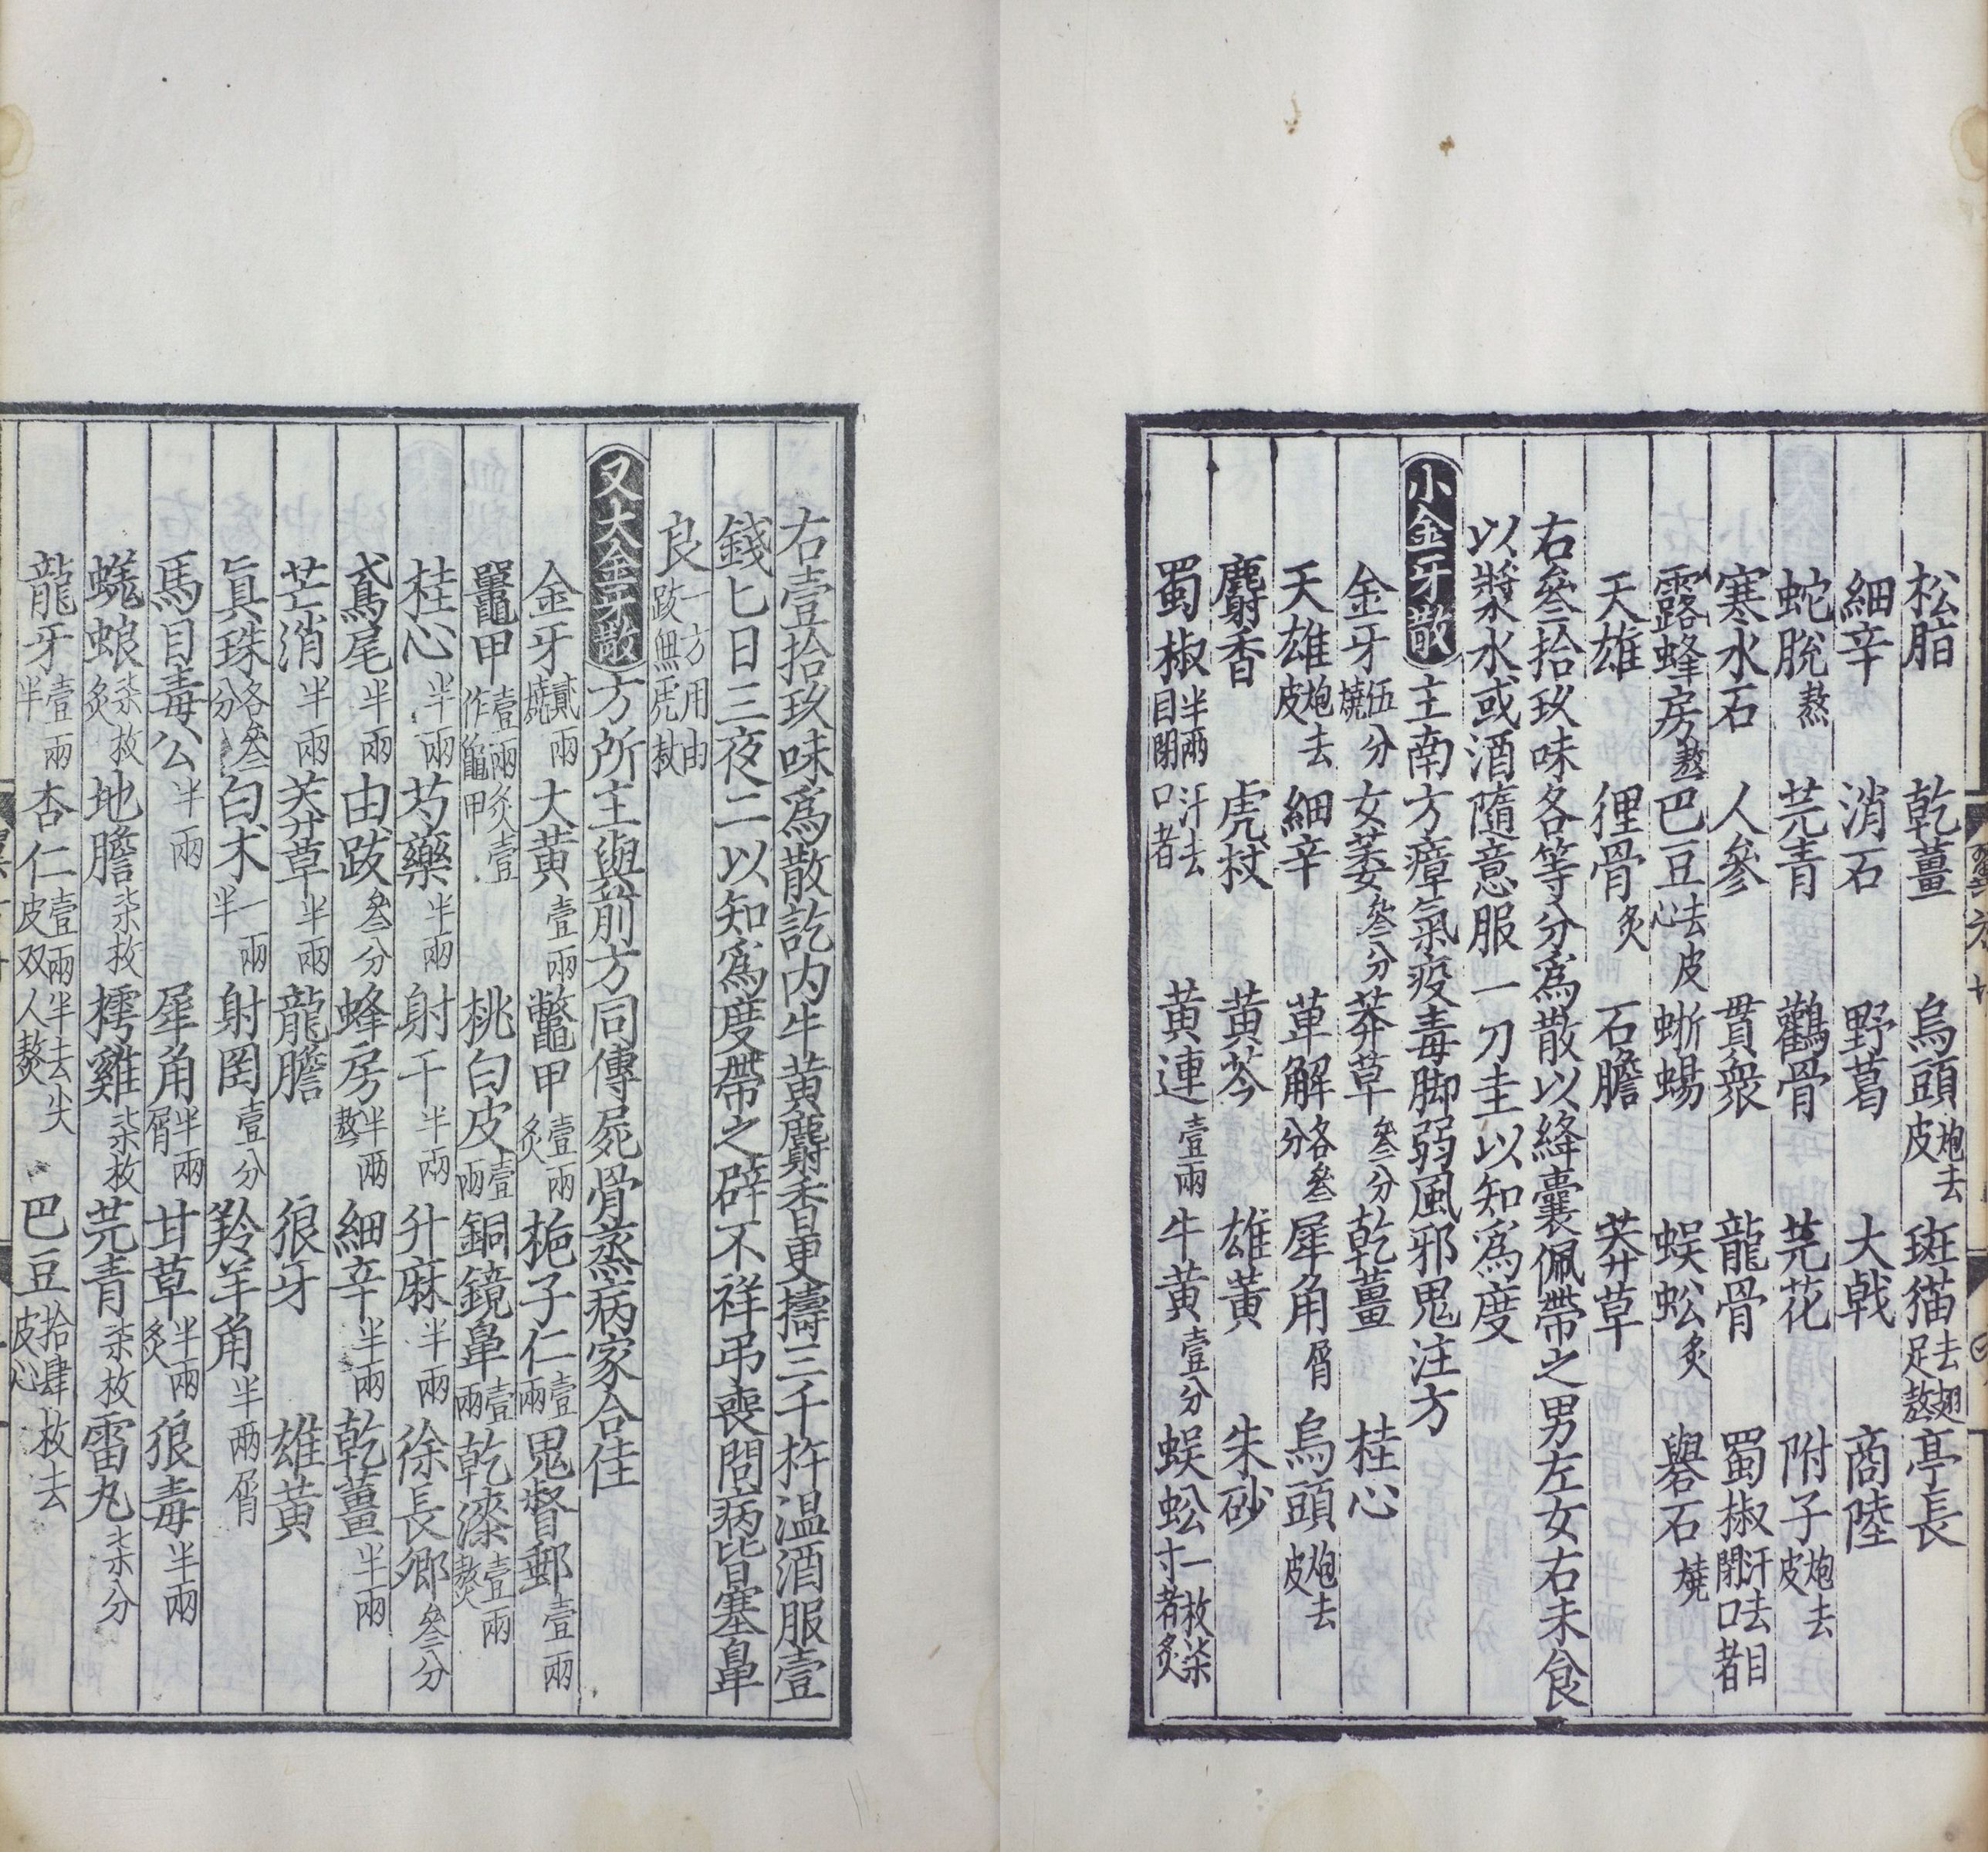 松脂 乾薑 烏頭炮去皮 斑猫去翅足熬 亭長
細辛 消石 野葛 大戟 商陸
蛇脫熬 芫青 鸛骨 芫花 附子炮去皮
寒水石 人參 貫衆 龍骨 蜀椒汗去目閉口者
露蜂房熬 巴豆去皮心 蜥蜴 蜈蚣炙 礜石燒
天雄 狸骨炙 石膽 莽草
右叄拾玖味各等分爲散以絳囊佩帶之男左女右未食
以漿水或酒隨意服一刀圭以知爲度
小金牙散主南方瘴氣疫毒脚弱風邪鬼注方
金牙伍分燒 女萎叄分 莽草叄分 乾薑 桂心
天雄炮去皮 細辛 萆解各叄分 犀角屑 烏頭炮去皮
麝香 虎杖 黄芩 雄黄 朱砂
蜀椒半兩汗去目閉口者 黄連壹兩 牛黄壹分 蜈蚣一枚柒寸者炙
右壹拾玖味爲散訖内牛黄麝香更擣三千杵温酒服壹
錢匕日三夜二以知爲度帶之辟不祥弔喪問病皆塞鼻
良一方用由跋無虎杖
又大金牙散方所主與前方同傳屍骨蒸病家合佳
金牙貳兩燒 大黄壹兩 鼈甲壹兩炙 梔子仁壹兩 鬼督郵壹兩
鼉甲壹兩炙壹作龜甲 桃白皮壹兩 銅鏡鼻壹兩 乾漆壹兩熬
桂心半兩 芍藥半兩 射干半兩 升麻半兩 徐長卿叄分
鳶尾半兩 由跋叄分 蜂房半兩熬 細辛半兩 乾薑半兩
芒消半兩 芺草半兩 龍膽 狼牙 雄黄
眞珠各叄分 白术一兩半 射罔壹分 羚羊角半兩屑
馬目毒公半兩 犀角半兩屑 甘草半兩炙 狼毒半兩
蜣蜋柒枚炙 地膽柒枚 樗雞柒枚 芫青柒枚 雷丸柒分
龍牙壹兩半 杏仁壹兩半去尖皮双人熬 巴豆拾肆枚去皮心